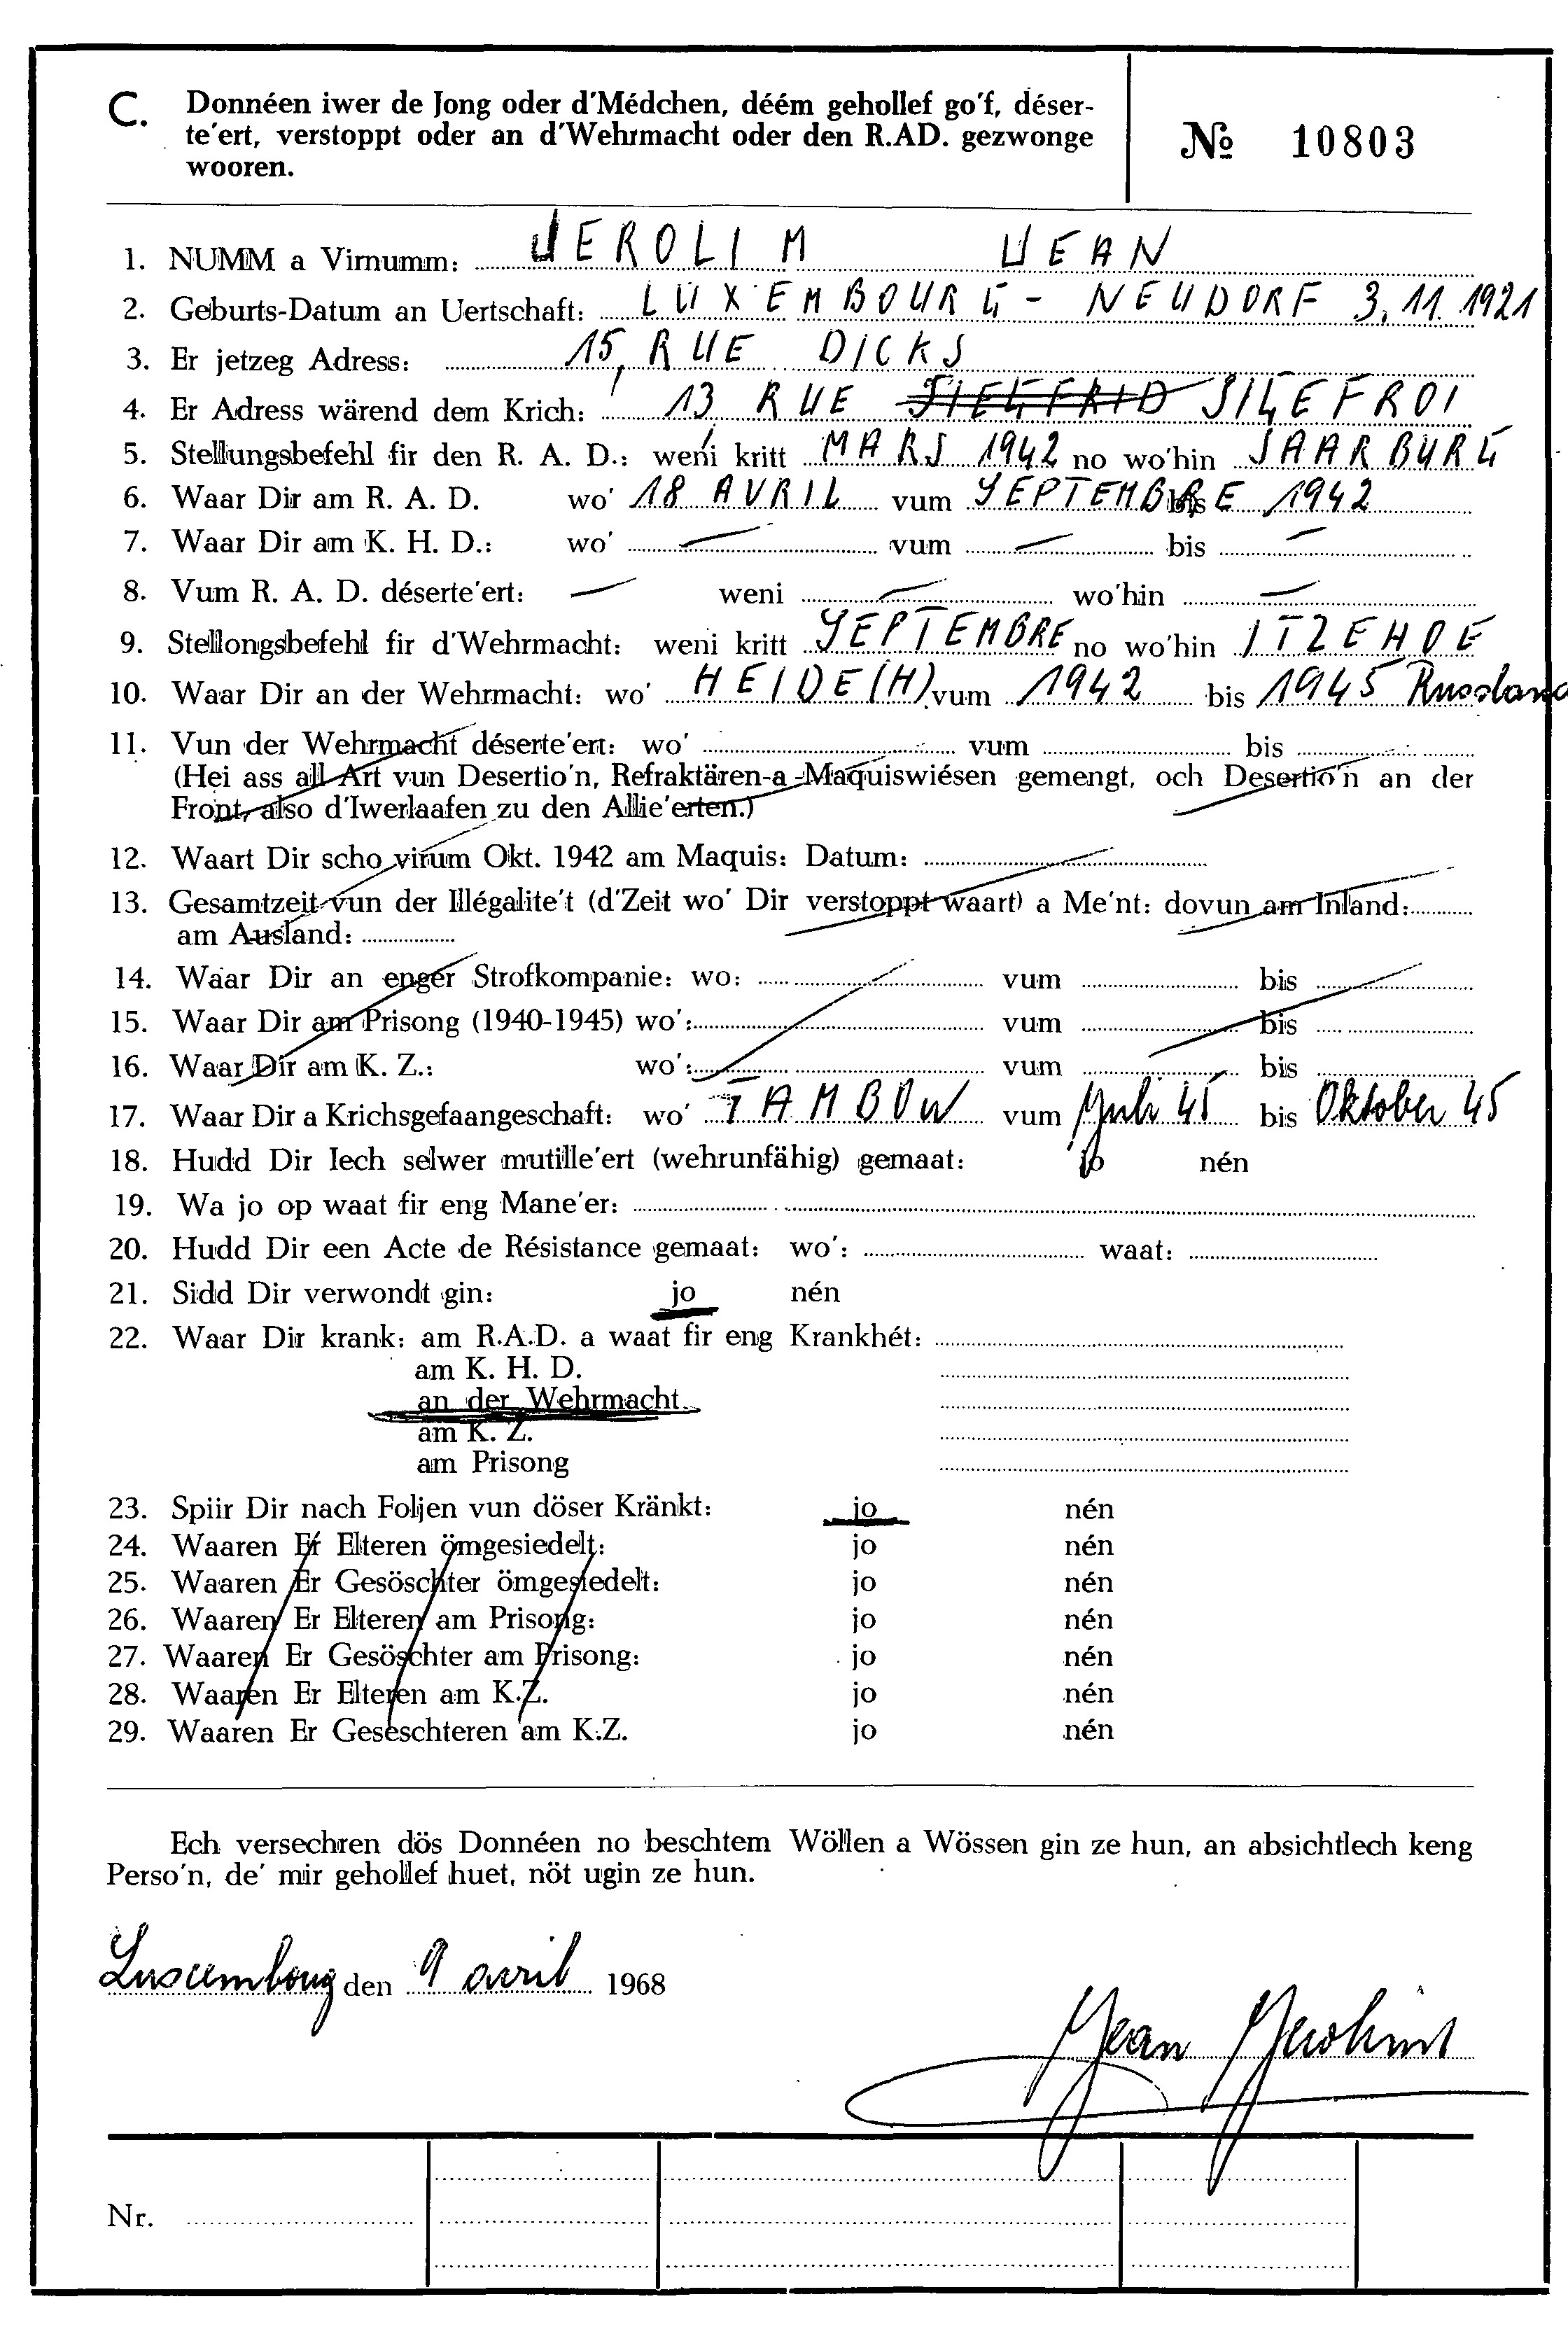 C. Donnéen iwer de Jong oder d'Médchen, déém gehollef go'f, déser-
te'ert, verstoppt oder an d'Wehrmacht oder den R.AD. gezwonge
wooren.
№ 10803
1. NUMM a Virnumm: JEROLIM JEAN
2. Geburts-Datum an Uertschaft: LUXEMBOURG - NEUDORF 3.11.1921
3. Er jetzeg Adress: 15, RUE DICKS
4. Er Adress wärend dem Krich: 13, RUE SIEGFRID SIGEFROI
5. Stellungsbefehl fir den R. A. D.: weni kritt MARS 1942 no wo'hin SAARBURG
6. Waar Dir am R. A. D. wo' 18 AVRIL vum SEPTEMBRE bis 1942
7. Waar Dir am K. H. D.: wo' — vum — bis —
8. Vum R. A. D. déserte'ert: — weni — wo'hin —
9. Stellongsbefehl fir d'Wehrmacht: weni kritt SEPTEMBRE no wo'hin ITZEHOE
10. Waar Dir an der Wehrmacht: wo' HEIDE(H) vum 1942 bis 1945 Russland
11. Vun der Wehrmacht déserte'ert: wo' vum bis
(Hei ass all Art vun Desertio'n, Refraktären-a-Maquiswiésen gemengt, och Desertio'n an der
Front, also d'Iwerlaafen zu den Allie'erten.)
12. Waart Dir scho virum Okt. 1942 am Maquis: Datum:
13. Gesamtzeit vun der Illégalite't (d'Zeit wo' Dir verstoppt waart) a Me'nt: dovun am Inland:
am Ausland:
14. Waar Dir an enger Strofkompanie: wo: vum bis
15. Waar Dir am Prisong (1940-1945) wo': vum bis
16. Waar Dir am K. Z.: wo': vum bis
17. Waar Dir a Krichsgefaangeschaft: wo' TAMBOW vum Juli 45 bis Oktober 45
18. Hudd Dir Iech selwer mutille'ert (wehrunfähig) gemaat: jo nén
19. Wa jo op waat fir eng Mane'er:
20. Hudd Dir een Acte de Résistance gemaat: wo': waat:
21. Sidd Dir verwondt gin: jo nén
22. Waar Dir krank: am R.A.D. a waat fir eng Krankhét:
am K. H. D.
an der Wehrmacht
am K. Z.
am Prisong
23. Spiir Dir nach Foljen vun döser Kränkt: jo nén
24. Waaren Er Elteren ömgesiedelt: jo nén
25. Waaren Er Gesöschter ömgesiedelt: jo nén
26. Waaren Er Elteren am Prisong: jo nén
27. Waaren Er Gesöschter am Prisong: jo nén
28. Waaren Er Elteren am K.Z. jo nén
29. Waaren Er Geseschteren am K.Z. jo nén
Ech versechren dös Donnéen no beschtem Wöllen a Wössen gin ze hun, an absichtlech keng
Perso'n, de' mir gehollef huet, nöt ugin ze hun.
Luxembourg den 9 avril 1968
Jean Jerolim
Nr.